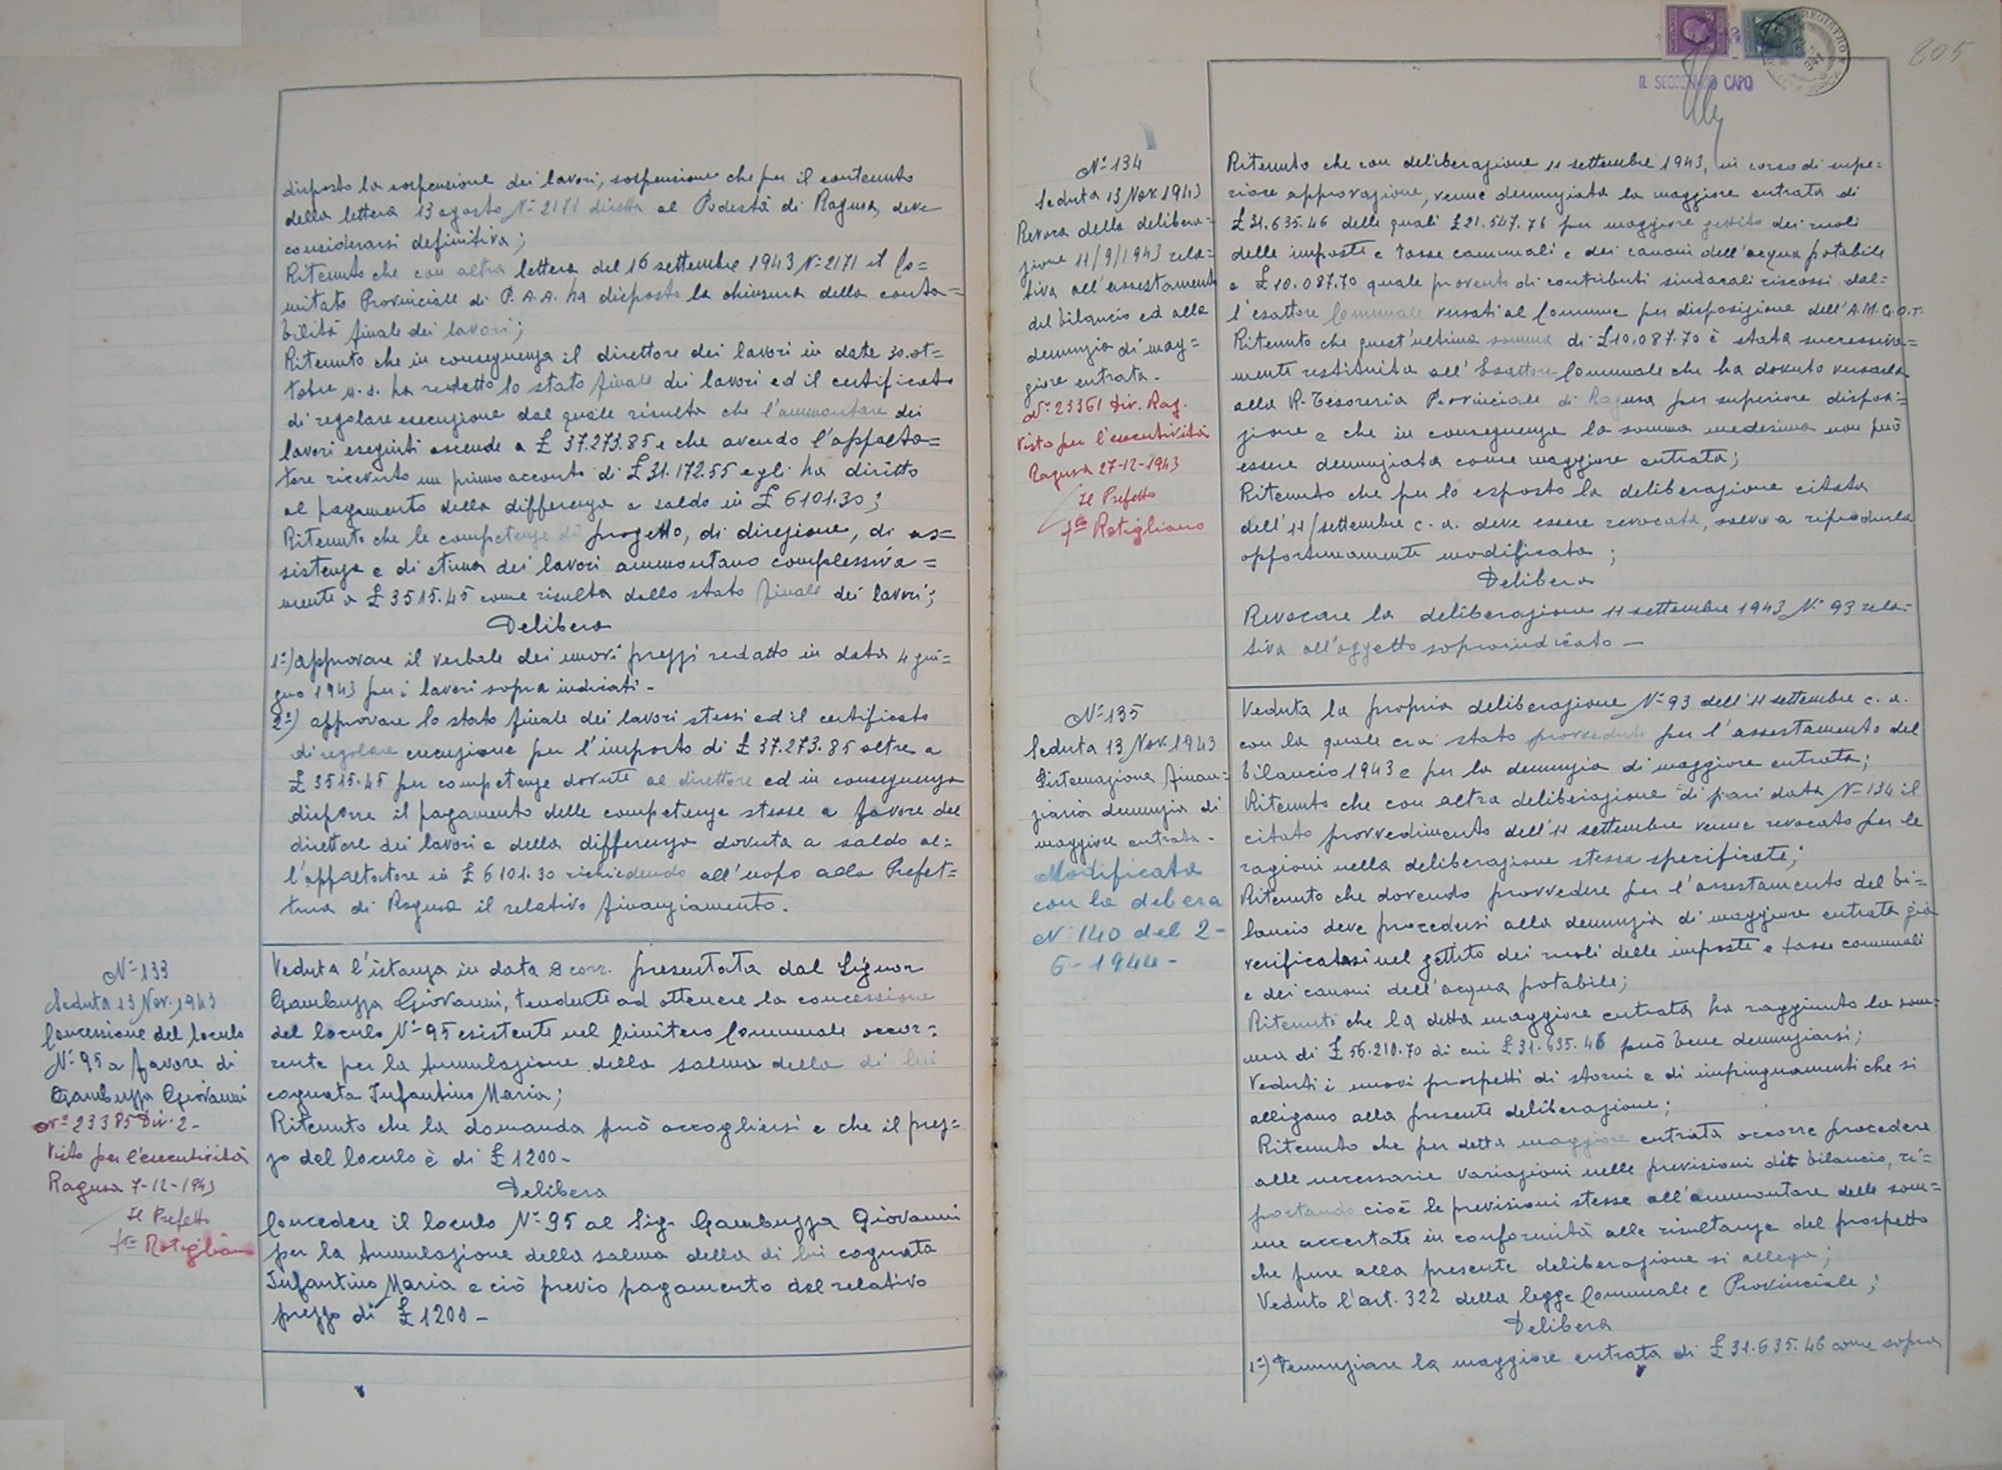 disposto la sospensione dei lavori, sospensione che per il contenuto
della lettera 13 agosto N° 2171 diretta al Podestà di Ragusa, deve
considerarsi definitiva;
Ritenuto che con altra lettera del 16 settembre 1943 N° 2171 il Co=
mitato Provinciale di P.A.A. ha disposto la chiusura della conta=
bilità finale dei lavori;
Ritenuto che in conseguenza il direttore dei lavori in data 30 ot=
tobre u.s. ha redatto lo stato finale dei lavori ed il certificato
di regolare esecuzione dal quale risulta che l'ammontare dei
lavori eseguiti ascende a £ 37.273.85 e che avendo l'appalta=
tore ricevuto un primo acconto di £ 31.172.55 egli ha diritto
al pagamento della differenza a saldo in £ 6101.30;
Ritenuto che le competenze di progetto, di direzione, di as=
sistenza e di stima dei lavori ammontano complessiva=
mente a £ 3515.45 come risulta dallo stato finale dei lavori;
Delibera
1°) approvare il verbale dei nuovi prezzi redatto in data 4 giu=
gno 1943 per i lavori sopra indicati -
2°) approvare lo stato finale dei lavori stessi ed il certificato
di regolare esecuzione per l'importo di £ 37.273.85 oltre a
£ 3515.45 per competenze dovute al direttore ed in conseguenza
disporre il pagamento delle competenze stesse a favore del
direttore dei lavori e della differenza dovuta a saldo al=
l'appaltatore in £ 6101.30 richiedendo all'uopo alla Prefet=
tura di Ragusa il relativo finanziamento.
N° 133
Seduta 13 Nov. 1943
Concessione del loculo
N° 95 a favore di
Gambuzza Giovanni
N° 23385 Div. 2-
Visto per l'esecutività
Ragusa 7-12-1943
Il Prefetto
fto Rotigliano
Veduta l'istanza in data 8 corr. presentata dal Signor
Gambuzza Giovanni, tendente ad ottenere la concessione
del loculo N° 95 esistente nel Cimitero Comunale occor=
rente per la tumulazione della salma della di lui
cognata Infantino Maria;
Ritenuto che la domanda può accogliersi e che il prez=
zo del loculo è di £ 1200-
Delibera
Concedere il loculo N° 95 al Sig. Gambuzza Giovanni
per la tumulazione della salma della di lui cognata
Infantino Maria e ciò previo pagamento del relativo
prezzo di £ 1200-
205
IL SEGRETARIO CAPO
N° 134
Seduta 13 Nov. 1943
Revoca della delibera=
zione 11/9/1943 rela=
tiva all'assestamento
del bilancio ed alla
denunzia di mag=
giore entrata -
N° 23361 Div. Rag.
Visto per l'esecutività
Ragusa 27-12-1943
Il Prefetto
fto Rotigliano
Ritenuto che con deliberazione 11 settembre 1943, in corso di supe=
riore approvazione, venne denunziata la maggiore entrata di
£ 31.635.46 delle quali £ 21.547.76 per maggiore gettito dei ruoli
delle imposte e tasse comunali e dei canoni dell'acqua potabile
e £ 10.087.70 quale provento di contributi sindacali riscossi dal=
l'esattore Comunale versati al Comune per disposizione dell'A.M.G.O.T.
Ritenuto che quest'ultima somma di £ 10.087.70 è stata successiva=
mente restituita all'Esattore Comunale che ha dovuto versarla
alla R. Tesoreria Provinciale di Ragusa per superiore disposi=
zione e che in conseguenza la somma medesima non può
essere denunziata come maggiore entrata;
Ritenuto che per lo esposto la deliberazione citata
dell'11/settembre c. a. deve essere revocata, salvo a riprodurla
opportunamente modificata;
Delibera
Revocare la deliberazione 11 settembre 1943 N° 93 rela=
tiva all'oggetto sopraindicato -
N° 135
Seduta 13 Nov. 1943
Sistemazione finan=
ziaria denunzia di
maggiore entrata -
Modificata
con la delibera
N° 140 del 2-
6-1944-
Veduta la propria deliberazione N° 93 dell'11 settembre c. a.
con la quale era stato provveduto per l'assestamento del
bilancio 1943 e per la denunzia di maggiore entrata;
Ritenuto che con altra deliberazione di pari data N° 134 il
citato provvedimento dell'11 settembre venne revocato per le
ragioni nella deliberazione stessa specificate;
Ritenuto che dovendo provvedere per l'assestamento del bi=
lancio deve procedersi alla denunzia di maggiore entrata già
verificatasi nel gettito dei ruoli delle imposte e tasse comunali
e dei canoni dell'acqua potabile;
Ritenuto che la detta maggiore entrata ha raggiunto la som=
ma di £ 56.210.70 di cui £ 31.635.46 può bene denunziarsi;
Veduti i nuovi prospetti di storni e di impinguamenti che si
alligano alla presente deliberazione;
Ritenuto che per detta maggiore entrata occorre procedere
alle necessarie variazioni nelle previsioni del bilancio, ri=
portando cioè le previsioni stesse all'ammontare delle som=
me accertate in conformità alle risultanze del prospetto
che pure alla presente deliberazione si allega;
Veduto l'art. 322 della legge Comunale e Provinciale;
Delibera
1°) Denunziare la maggiore entrata di £ 31.635.46 come sopra